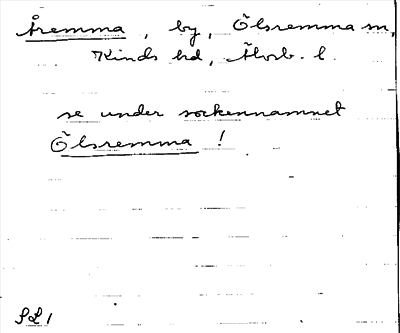 Åremma, by, Ölsremma sn,
Kinds hd, Älvsb. l.
se under sockennamnet
Ölsremma!
SL1